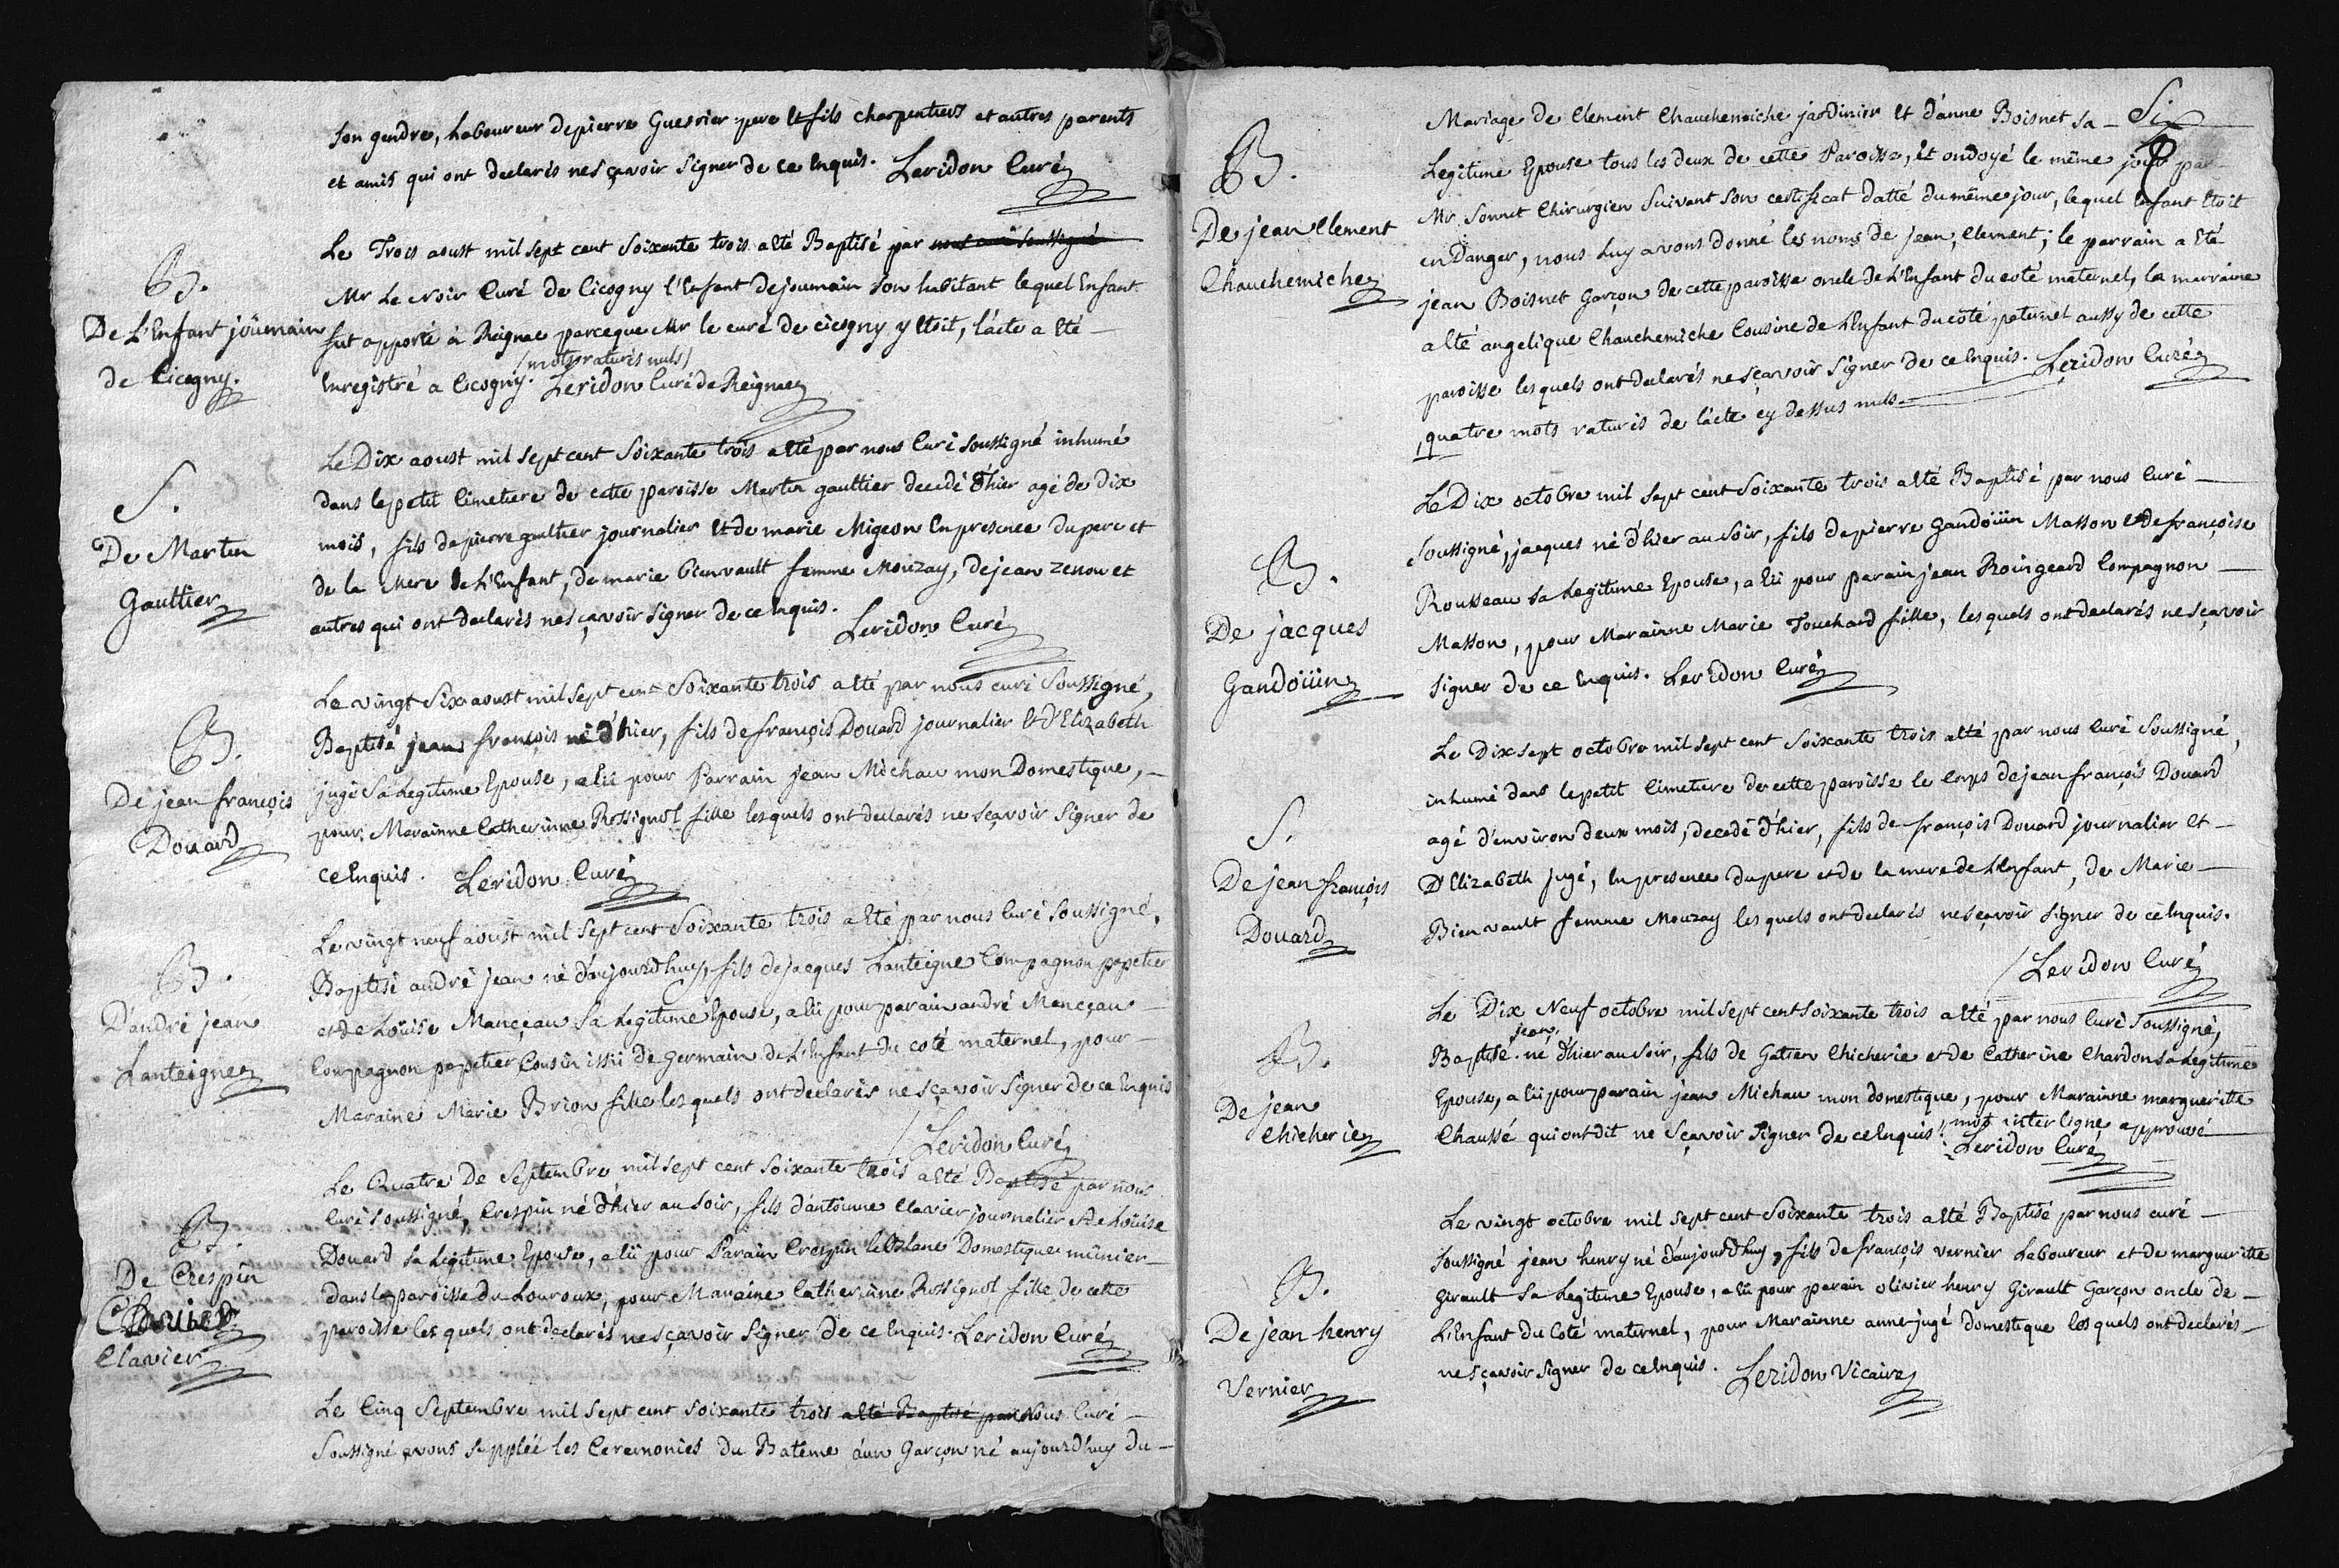 Son gendre, Laboureur de pierre Guerrier pere et fils charpentiers et autres parents
et amis qui ont declarés ne sçavoir signer de ce Enquis. Leridon Curé
B.
De L'Enfant joüemain
de Cicogny.
Le Trois aoust mil sept cent soixante trois a Eté Baptisé par nous curé soussigné
Mr Le croir Curé de Cicogny l'Enfant de joumain son habitant lequel Enfant
fut apporté à Reignac parceque Mr le curé de cicogny y Etoit, l'acte a Eté
(mots raturés nuls)
Enregistré a Cicogny. Leridon Curé de Reignac
S.
De Martin
Gaultier
Le Dix aoust mil sept cent soixante trois a Eté par nous Curé soussigné inhumé
dans le petit Cimetiere de cette paroisse Martin gaultier decedé d'hier agé de Dix
mois, fils de pierre gaultier journalier et de marie Migeon En presence du pere et
de la Mere de L'Enfant, de marie Bienvault femme Mouzay, de jean zenon et
autres qui ont declarés ne sçavoir signer de ce Enquis. Leridon Curé
B.
De jean françois
Douard
Le vingt Six aoust mil sept cent soixante trois a Eté par nous curé Soussigné,
Baptisé jean françois né d'hier, fils de françois Douard journalier et d'Elizabeth
jugé sa Legitime Epouse, a Eü pour Parrain jean Michau mon Domestique,
pour Marainne Catherinne Rossignol fille lesquels ont declarés ne sçavoir signer de
ce Enquis. Leridon Curé
B.
D'andré jean
Lanteigne
Le vingt neuf aoust mil sept cent soixante trois a Eté par nous Curé soussigné,
Baptisé andré jean né d'aujourd'huy, fils de jacques Lanteigne Compagnon papetier
et de Loüise Mançeau sa Legitime Epouse, a Eü pour parain andré Mançeau
Compagnon papetier Cousin issü de germain de L'Enfant du coté maternel, pour
Maraine Marie Brion fille lesquels ont declarés ne sçavoir signer de ce Enquis
Leridon Curé
B.
De Crespin
Clavier
Le Quatre De Septembre mil sept cent soixante trois a Eté Baptisé par nous
Curé soussigné, Crespin né d'hier au soir, fils d'antoinne Clavier journalier et de Loüise
Douard sa Legitime Epouse, a Eü pour Parain Crespin Domestique münier
dans la paroisse du Louroux, pour Maraine Catherinne Rossignol fille de cette
paroisse lesquels ont declarés ne sçavoir signer de ce Enquis. Leridon Curé
Le Cinq Septembre mil sept cent soixante trois a Eté Baptisé par Nous Curé
Soussigné avons suppléé les Ceremonies du Batême à un Garçon né aujourd'huy du
Six
B.
De jean Clement
Chauchemiche
Mariage de Clement Chauchemiche jardinier et d'anne Boisnet sa
Legitime Epouse tous les deux de cette Paroisse, Et ondoyé le même jour par
Mr. Sonnet Chirurgien Suivant son certificat datté du même jour, lequel Enfant Etoit
en Danger, nous Luy avons donné les noms de jean, Clement; le parrain a Eté
jean Boisnet Garçon de cette paroisse oncle de L'Enfant du coté maternel, la marraine
a Eté angelique Chauchemiche Cousine de L'Enfant du coté paternel aussy de cette
paroisse lesquels ont declarés ne sçavoir signer de ce Enquis. Leridon Curé
quatre mots raturés de l'acte cy dessus nuls.
B.
De jacques
Gandoüin
Le Dix octobre mil sept cent soixante trois a Eté Baptisé par nous Curé
soussigné, jacques né d'hier au soir, fils de pierre Gandoüin Masson et de françoise
Rousseau sa Legitime Epouse, a Eü pour parain jean Roingeard Compagnon
Masson, pour Marainne Marie Touchard fille, lesquels ont declarés ne sçavoir
signer de ce Enquis. Leridon Curé
S.
De jean françois
Douard
Le Dix sept octobre mil sept cent soixante trois a Eté par nous Curé soussigné,
inhumé dans le petit Cimetiere de cette paroisse le Corps de jean françois Douard
agé d'environ deux mois, decedé d'hier, fils de françois Douard journalier et
D'Elizabeth jugé, En presence du pere et de la mere de L'Enfant, de Marie
Bienvault femme Mouzay lesquels ont declarés ne sçavoir signer de ce Enquis.
Leridon Curé
B.
De jean
Chicherie
Le Dix Neuf octobre mil sept cent soixante trois a Eté par nous Curé Soussigné,
jean
Baptisé né d'hier au soir, fils de Gatien Chicherie et de Catherine Chardon sa Legitime
Epouse, a Eü pour parain jean Michau mon domestique, pour Marainne margueritte
Chaussé qui ont dit ne sçavoir signer de ce Enquis. mot interligne approuvé
Leridon Curé
B.
De jean henry
Vernier
Le vingt octobre mil sept cent soixante trois a Eté Baptisé par nous curé
soussigné jean henry né d'aujourd'huy, fils de françois vernier Laboureur et de margueritte
girault sa Legitime Epouse, a Eü pour parain olivier henry Girault Garçon oncle de
L'Enfant du Coté maternel, pour Marainne anne jugé domestique lesquels ont declarés
ne sçavoir signer de ce Enquis. Leridon Vicaire